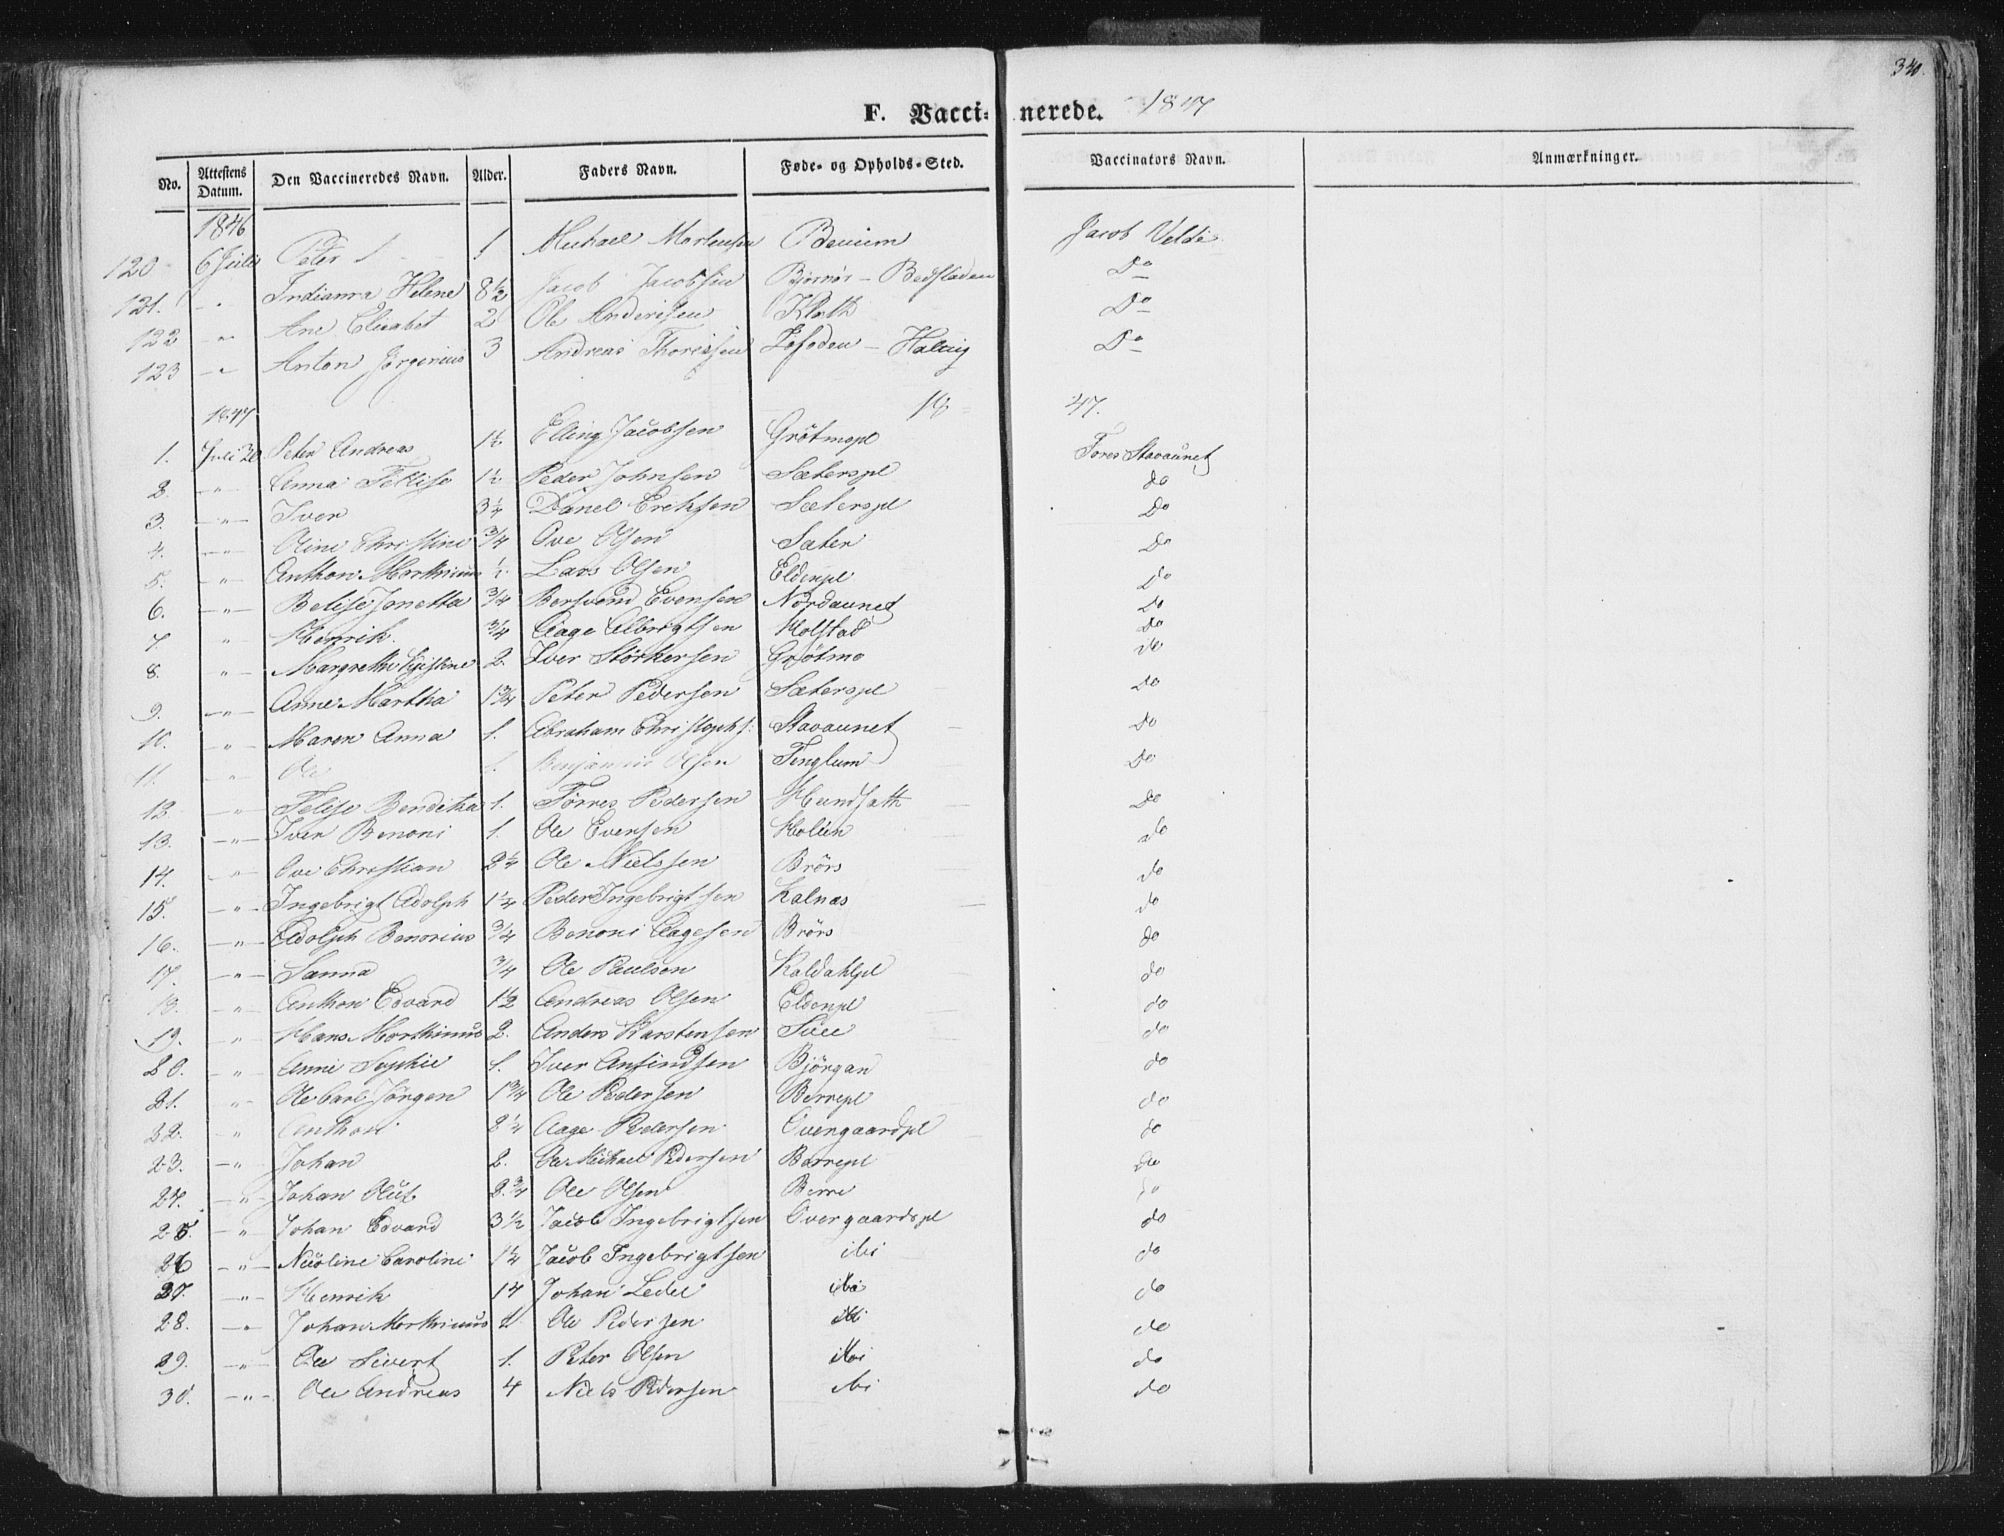 340.
F. Vaccinerede. 1847
No. Attestens Datum. Den Vaccineredes Navn. Alder. Faders Navn. Føde- og Opholds-Sted. Vaccinators Navn. Anmærkninger.
1846
120 6 Juli Peter 1 Michael Mortensen Jacob Velde
121. " Indianna Helene 8½ Jacob Jacobsen Bjørnør - Do
122 " Ane Elisabet 2 Ole Andersen Do
123 " Anton Jørginius 3 Andreas Lofoden - Do
1847 18 47.
1. Juli 20 Peter Andreas 1½ Elling Jacobsen Grötmopl Fores Stavaunet
2. " Anna 1½ Peder Johnsen Sæterspl do
3. " Iver 3¼ Danel Eriksen Sæterspl Do
4. " Oline Christine ¾ Ove Olsen Sæter Do
5. " Anthon Morthinus ½ Lars Olsen Eldenpl Do
6. " Belise Janetta ¾ Evensen Nordaunet Do
7. " Henrik ¾ Aage Albrigtsen Holstad Do
8. " Margrethe 2. Iver Störkersen Grötmo do
9. " Anne Martha 1¾ Peter Pedersen Sæterspl Do
10. " Maren Anna 1. Abraham Christophs: Stavaunet Do
11. " Ole 1. Benjamin Olsen Tinglum Do
12. " Bendikta 1. Torres Pedersen Do
13. " Iver Benoni 1. Ole Evensen Holien do
14. " Ove Christian 2¼ Ole Nielssen Brörs do
15. " Ingebrigt Adolph 1¼ Peder Ingebrigtsen Kalnæs do
16. " Adolph Benorius ¾ Benoni Aagesen Brörs do
17. " Sanna ¾ Ole Paulsen Kaldahlpl do
18. " Anthon Edvard 1½ Andreas Olsen Eldenpl do
19. " Hans Morthinus 2. Anders Karstensen do
20. " Anne Sophie 1. Iver Anfindsen Björgan do
21. " Ole Carl Jörgen 1¾ Ole Pedersen Berrepl do
22. " Anthon 2¼ Aage Pedersen Overgaardpl do
23. " Johan 2. Ole Michael Pedersen Berrepl do
24. " Johan Oluf 2¾ Ole Olsen Berre do
25. " Johan Edvard 3½ Jacob Ingebrigtsen Overgaardspl do
26 " Nicoline Caroline 1¼ Jacob Ingebrigtsen ibi do
27. " Henrik 14 Johan ibi do
28. " Johan Morthinus 1. Ole Pedersen ibi do
29. " Ole Sivert 1. Peter Olsen ibi do
30. " Ole Andreas 4 Niels Pedersen ibi do